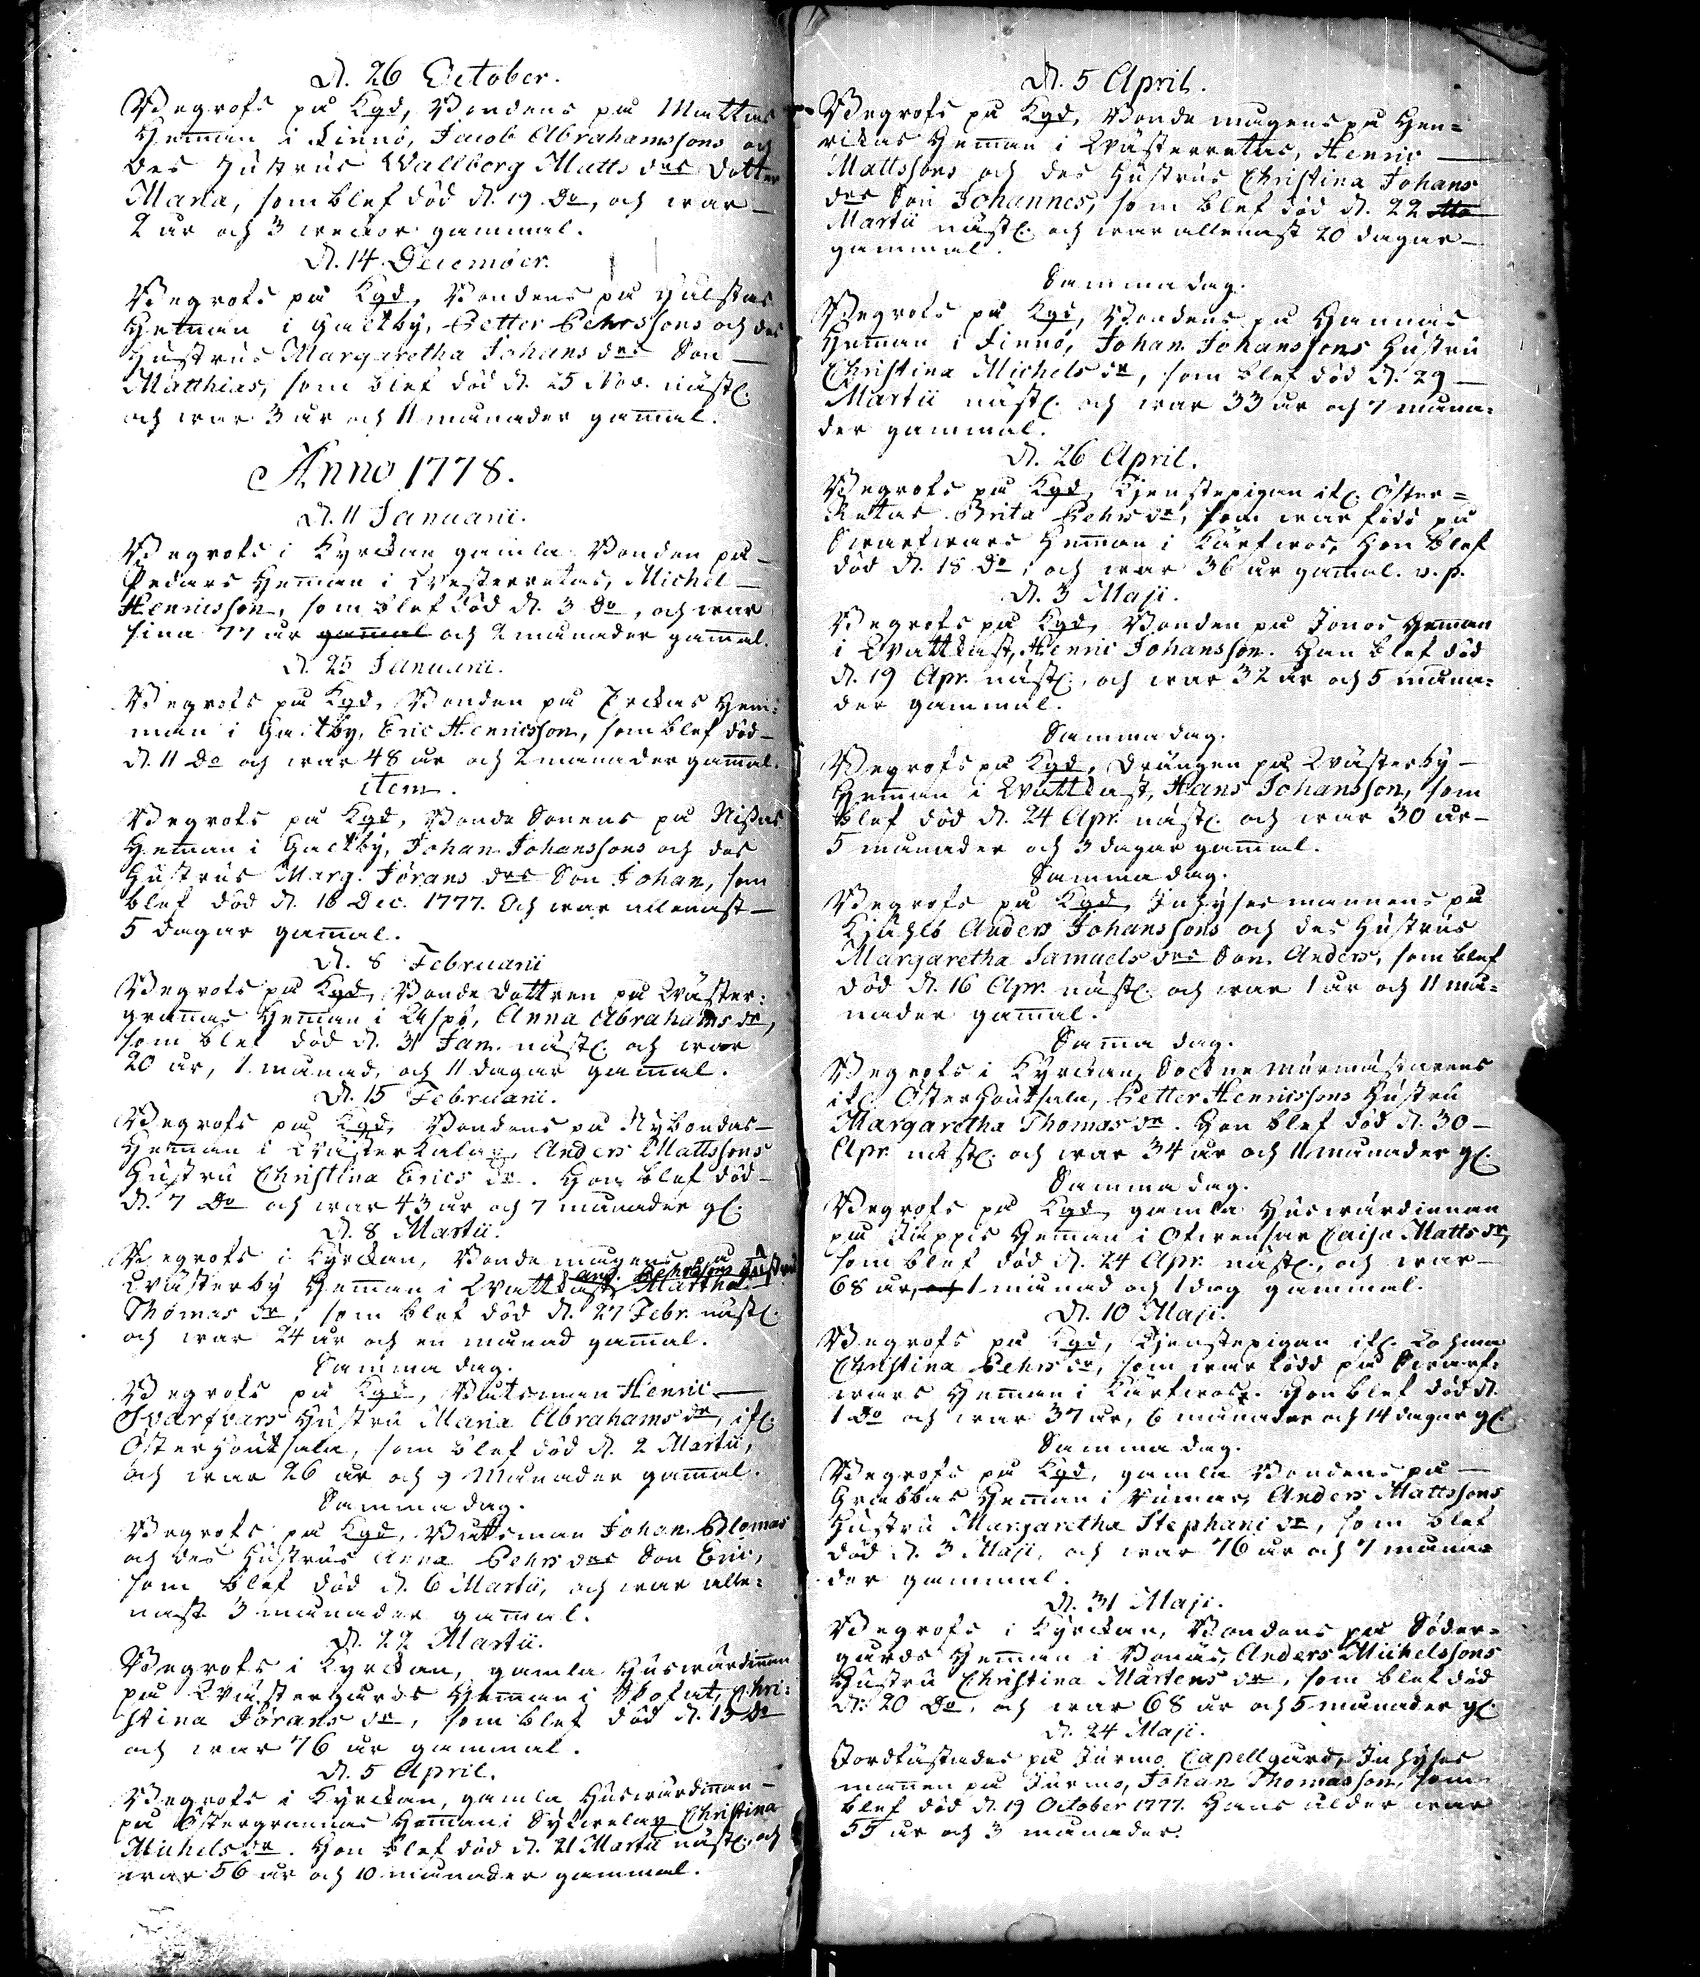 D. 26 October.
Begrofs på Kgd, Bondens på Mattas
Heman i Finnö, Jacob Abrahamssons och
des Hustrus Wallborg Matts drs Dotter
Maria, som blef död d. 19 Do, och war
2 år och 3 weckor gammal.
D. 14 December.
Begrofs på Kgd, Bondens på
Heman i Galtby, Petter Pehrssons och des
Hustrus Margaretha Johans drs Son
Matthias, som blef död d. 25 Nov. nästl.
och war 3 år och 11 månader gamal.
Anno 1778.
D. 11 Januarii.
Begrofs i Kyrckan gamla Bonden på
Pedars Heman i Westerretas, Michel
Henricsson, som blef död d. 3 Do, och war
sina 77 år gamal och 2 månader gamal.
D. 25 Januarii.
Begrofs på Kgd, Bonden på Erckas Hem:
man i Galtby, Eric Henricsson, som blef död
d. 11 Do och war 48 år och 2 månader gamal.
item.
Begrofs på Kgd, Bonde Sonens på Nissas
Heman i Galtby, Johan Johanssons och des
Hustrus Marg. Jörans drs Son Johan, som
blef död d. 16 Dec. 1777. Och war allenast
5 dagar gamal.
D. 8 Februarii
Begrofs på Kgd, Bonde dottren på Wäster:
granas Heman i Aspö, Anna Abrahams dr,
som blef död d. 31 Jan. nästl. och war
20 år, 1 månad, och 11 dagar gamal.
D. 15 Februarii.
Begrofs på Kgd, Bondens på Nybondas
Heman i Wästerkalax, Anders Mattssons
Hustru Christina Erics dr. Hon blef död
d. 7 Do och war 43 år och 7 månader gl.
D. 8 Martii.
Begrofs i Kyrckan, Bonde mågens på
And. Hustru
Wästerby Heman i Wattkast, Martha
Thomas dr, som blef död d. 27 Febr. nästl.
och war 24 år och en månad gamal.
Samma dag.
Begrofs på Kgd, Båtsman Henric
Svarfvars Hustru Maria Abrahams dr, ifl.
Österhoutskala, som blef död d. 2 Martii,
och war 26 år och 9 Månader gamal.
Samma dag.
Begrofs på Kgd, Båtsman Johan Blomas
och des Hustrus Anna Pehrs drs Son Eric,
som blef död d. 6 Martii, och war alle:
nast 3 månader gamal.
D. 22 Martii.
Begrofs i Kyrckan, gamla Huswärdinnan
på Wästergårds Heman i Chri:
stina Jörans dr, som blef död d. 13 Do
och war 76 år gammal.
D. 5 April.
Begrofs i Kyrckan, gamla Huswärdinan
på Östergrannas Heman i Christina
Michels dr. Hon blef död d. 21 Martii nästl. och
war 56 år och 10 månader gammal.
D. 5 April.
Begrofs på Kgd, Bonde mågens på Hen=
rickas Heman i Wästerretas, Henric
Mattssons och des Hustrus Christina Johans
drs Son Johannes, som blef död d. 22
Martii nästl. och war allenast 20 dagar
gammal.
Samma dag.
Begrofs på Kgd, Bondens på Hannäs
Heman i Finnö, Johan Johanssons Hustru
Christina Michels dr, som blef död d. 29
Martii nästl. och war 33 år och 7 måna=
der gammal.
D. 26 April.
Begrofs på Kgd, Tjenstepigan ifl. Öster=
Retas Brita Pehrs dr, som war född på
Swarfwars Heman i Kärfwos, Hon blef
död d. 18 Do, och war 36 år gamal. v. p.
D. 3 Maji.
Begrofs på Kgd, Bonden på Jonos Heman
i Wattkast, Henric Johansson. Han blef död
d. 19 Apr. nästl. och war 32 år och 5 måna=
der gammal.
Samma dag.
Begrofs på Kgd, Drängen på Wästerby
Heman i Wattkast, Hans Johansson, som
blef död d. 24 Apr. nästl. och war 30 år
5 månader och 3 dagar gamal.
Samma dag.
Begrofs på Kgd, Inhyses mannens på
Anders Johanssons och des Hustrus
Margaretha Samuels drs Son Anders, som blef
död d. 16 Apr. nästl. och war 1 år och 11 må=
nader gamal.
Sama dag.
Begrofs i Kyrckan, Sockne Murmästarens
ifl. Österhoutskala, Petter Henricssons Hustru
Margaretha Thomas dr. Hon blef död d. 30
Apr. nästl. och war 34 år och 11 månader gl.
Samma dag.
Begrofs på Kgd, gamla Huswärdinnan
på Heman i Caisa Matts dr,
som blef död d. 24 Apr. nästl., och war
68 år, och 1 månad och 1 dag gammal.
D. 10 Maji.
Begrofs på Kgd, Tjenstepigan ifl.
Christina Pehrs dr, som war född på Swarf=
wars Heman i Kärfwos. Hon blef död d.
1 Do och war 37 år, 6 månader och 14 dagar gl.
Samma dag.
Begrofs på Kgd, gamla Bondens på
Grabbas Heman i Anders Mattssons
Hustru Margaretha Stephani dr, som blef
död d. 3 Maji, och war 76 år och 7 måna
der gammal.
D. 31 Maji.
Begrofs i Kyrckan, Bondens på Söder=
gårds Heman i Bonäs, Anders Michelssons
Hustru Christina Mårtens dr, som blef död
d. 20 Do, och war 68 år och 5 månader gl.
D. 24 Maji.
Jordfästades på Jurmo Capellgård, Inhyses
manen på Jurmo, Johan Thomasson, som
blef död d. 19 October 1777. Hans ålder war
55 år och 3 månader.